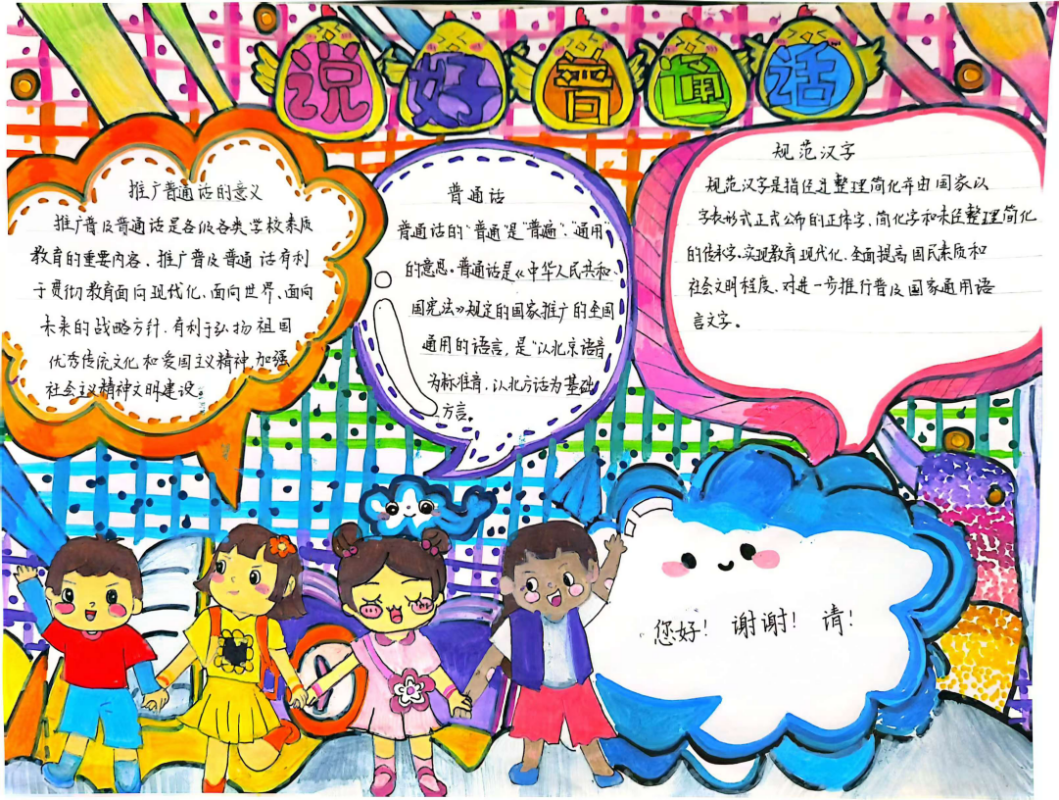 说好普通话
推广普通话的意义
推广普及普通话是各级各类学校素质
教育的重要内容。推广普及普通话有利
于贯彻教育面向现代化、面向世界、面向
未来的战略方针,有利于弘扬祖国
优秀传统文化和爱国主义精神,加强
社会主义精神文明建设。
普通话
普通话的“普通”是“普遍”、“通用”
的意思。普通话是《中华人民共和
国宪法》规定的国家推广的全国
通用的语言,是“以北京语音
为标准音,以北方话为基础
方言。
规范汉字
规范汉字是指经过整理简化并由国家以
字表形式正式公布的正体字、简化字和未经整理简化
的传承字。实现教育现代化、全面提高国民素质和
社会文明程度,对进一步推行普及国家通用语
言文字。
您好! 谢谢! 请!